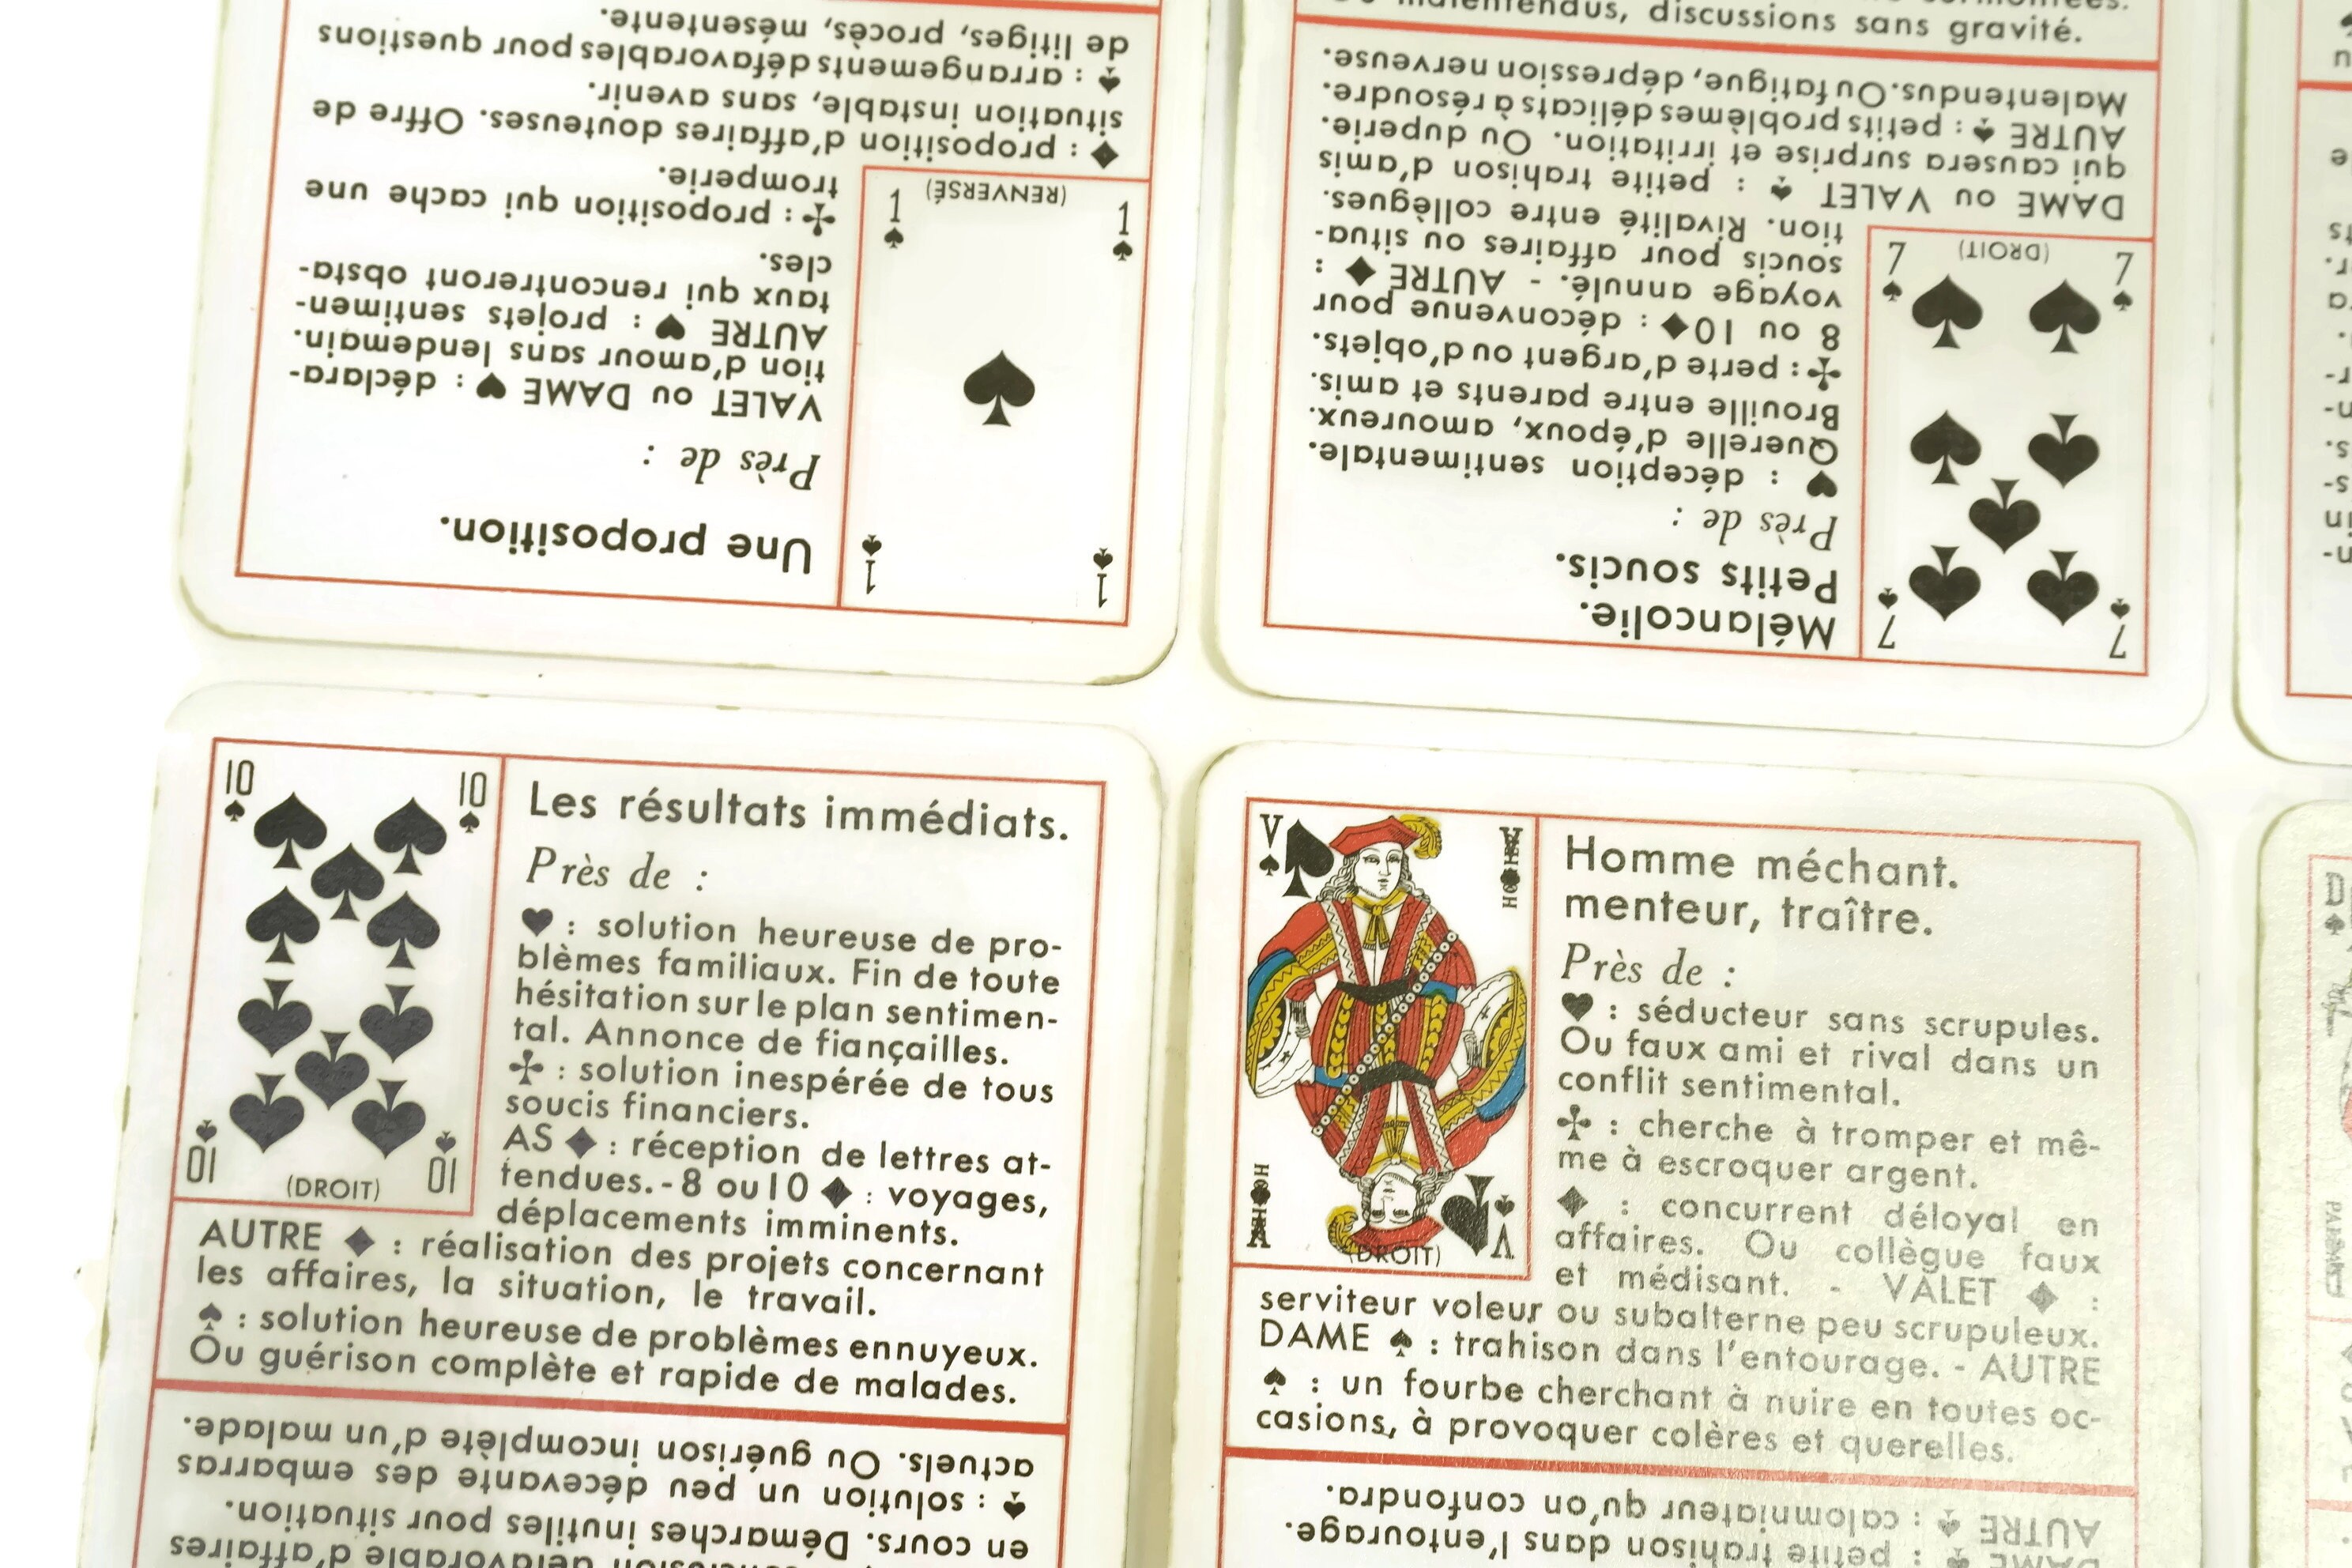 Une proposition.
Près de :
VALET ou DAME ♥ : déclara-
tion d'amour sans lendemain.
AUTRE ♥ : projets sentimen-
taux qui rencontreront obsta-
cles.
♣ : proposition qui cache une
tromperie.
♦ : proposition d'affaires douteuses. Offre de
situation instable, sans avenir.
♠ : arrangements défavorables pour questions
de litiges, procès, mésentente.
1 1
(RENVERSÉ)
1 1
discussions sans gravité.
Mélancolie.
Petits soucis.
Près de :
♥ : déception sentimentale.
Querelle d'époux, amoureux.
Brouille entre parents et amis.
♣ : perte d'argent ou d'objets.
8 ou 10 ♦ : déconvenue pour
voyage annulé. - AUTRE ♦ :
soucis pour affaires ou situa-
tion. Rivalité entre collègues.
DAME ou VALET ♠ : petite trahison d'amis
qui causera surprise et irritation. Ou duperie.
AUTRE ♠ : petits problèmes délicats à résoudre.
Malentendus. Ou fatigue, dépression nerveuse.
7 7
(DROIT)
7 7
10 10
(DROIT)
10 10
Les résultats immédiats.
Près de :
♥ : solution heureuse de pro-
blèmes familiaux. Fin de toute
hésitation sur le plan sentimen-
tal. Annonce de fiançailles.
♣ : solution inespérée de tous
soucis financiers.
AS ♦ : réception de lettres at-
tendues. - 8 ou 10 ♦ : voyages,
déplacements imminents.
AUTRE ♦ : réalisation des projets concernant
les affaires, la situation, le travail.
♠ : solution heureuse de problèmes ennuyeux.
Ou guérison complète et rapide de malades.
en cours. Démarches inutiles pour situation.
♠ : solution un peu décevante des embarras
actuels. Ou guérison incomplète d'un malade.
V
HOGIER
(DROIT)
HOGIER
V
Homme méchant.
menteur, traître.
Près de :
♥ : séducteur sans scrupules.
Ou faux ami et rival dans un
conflit sentimental.
♣ : cherche à tromper et mê-
me à escroquer argent.
♦ : concurrent déloyal en
affaires. Ou collègue faux
et médisant. - VALET ♦ :
serviteur voleur ou subalterne peu scrupuleux.
DAME ♠ : trahison dans l'entourage. - AUTRE
♠ : un fourbe cherchant à nuire en toutes oc-
casions, à provoquer colères et querelles.
DAME ♠ : petite trahison dans l'entourage.
AUTRE ♠ : calomniateur qu'on confondra.
D